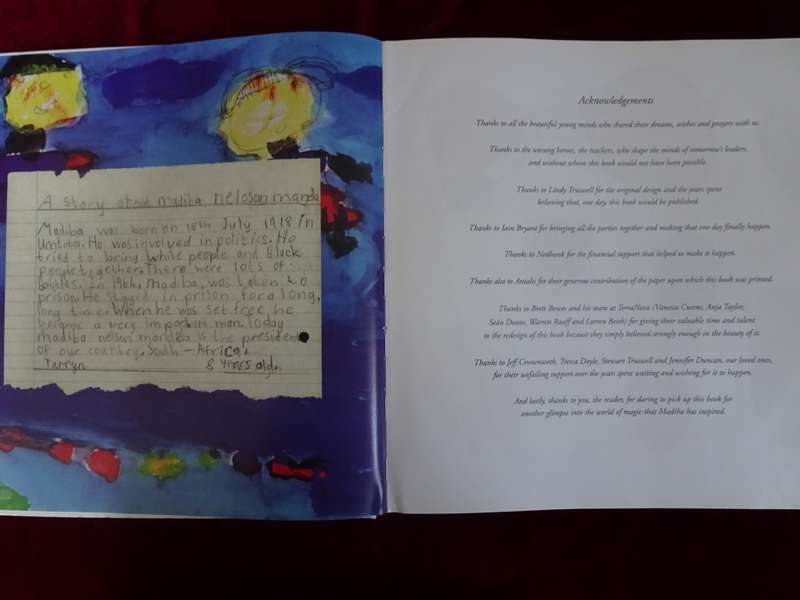 A story about Madiba nelosan mande
Madiba was born on 18th July 1918 in
Umtata. He was involved in politics. He
tried to bring white people and black
people together. There were lots of
battles. In 1964, madiba, was taken to
prison. He stayed in prison for a long,
long time. When he was set free, he
became a very important man. Today
madiba nelson mandela is the president
of our country, South - Africa.
Tarryn 8 years old.
Acknowledgements
Thanks to all the beautiful young minds who shared their dreams, wishes and prayers with us.
Thanks to the unsung heroes, the teachers, who shape the minds of tomorrow's leaders,
and without whom this book would not have been possible.
Thanks to Lindy Truswell for the original design and the years spent
believing that, one day, this book would be published.
Thanks to Iain Bryant for bringing all the parties together and making that one day finally happen.
Thanks to Nedbank for the financial support that helped to make it happen.
Thanks also to Antalis for their generous contribution of the paper upon which this book was printed.
Thanks to Brett Bowes and his team at TerraNova (Vanessa Cuzens, Anja Taylor,
Seán Deane, Warren Raaff and Lorren Beith) for giving their valuable time and talent
to the redesign of this book because they simply believed strongly enough in the beauty of it.
Thanks to Jeff Cronenworth, Tressa Doyle, Stewart Truswell and Jennifer Duncan, our loved ones,
for their unfailing support over the years spent waiting and wishing for it to happen.
And lastly, thanks to you, the reader, for daring to pick up this book for
another glimpse into the world of magic that Madiba has inspired.